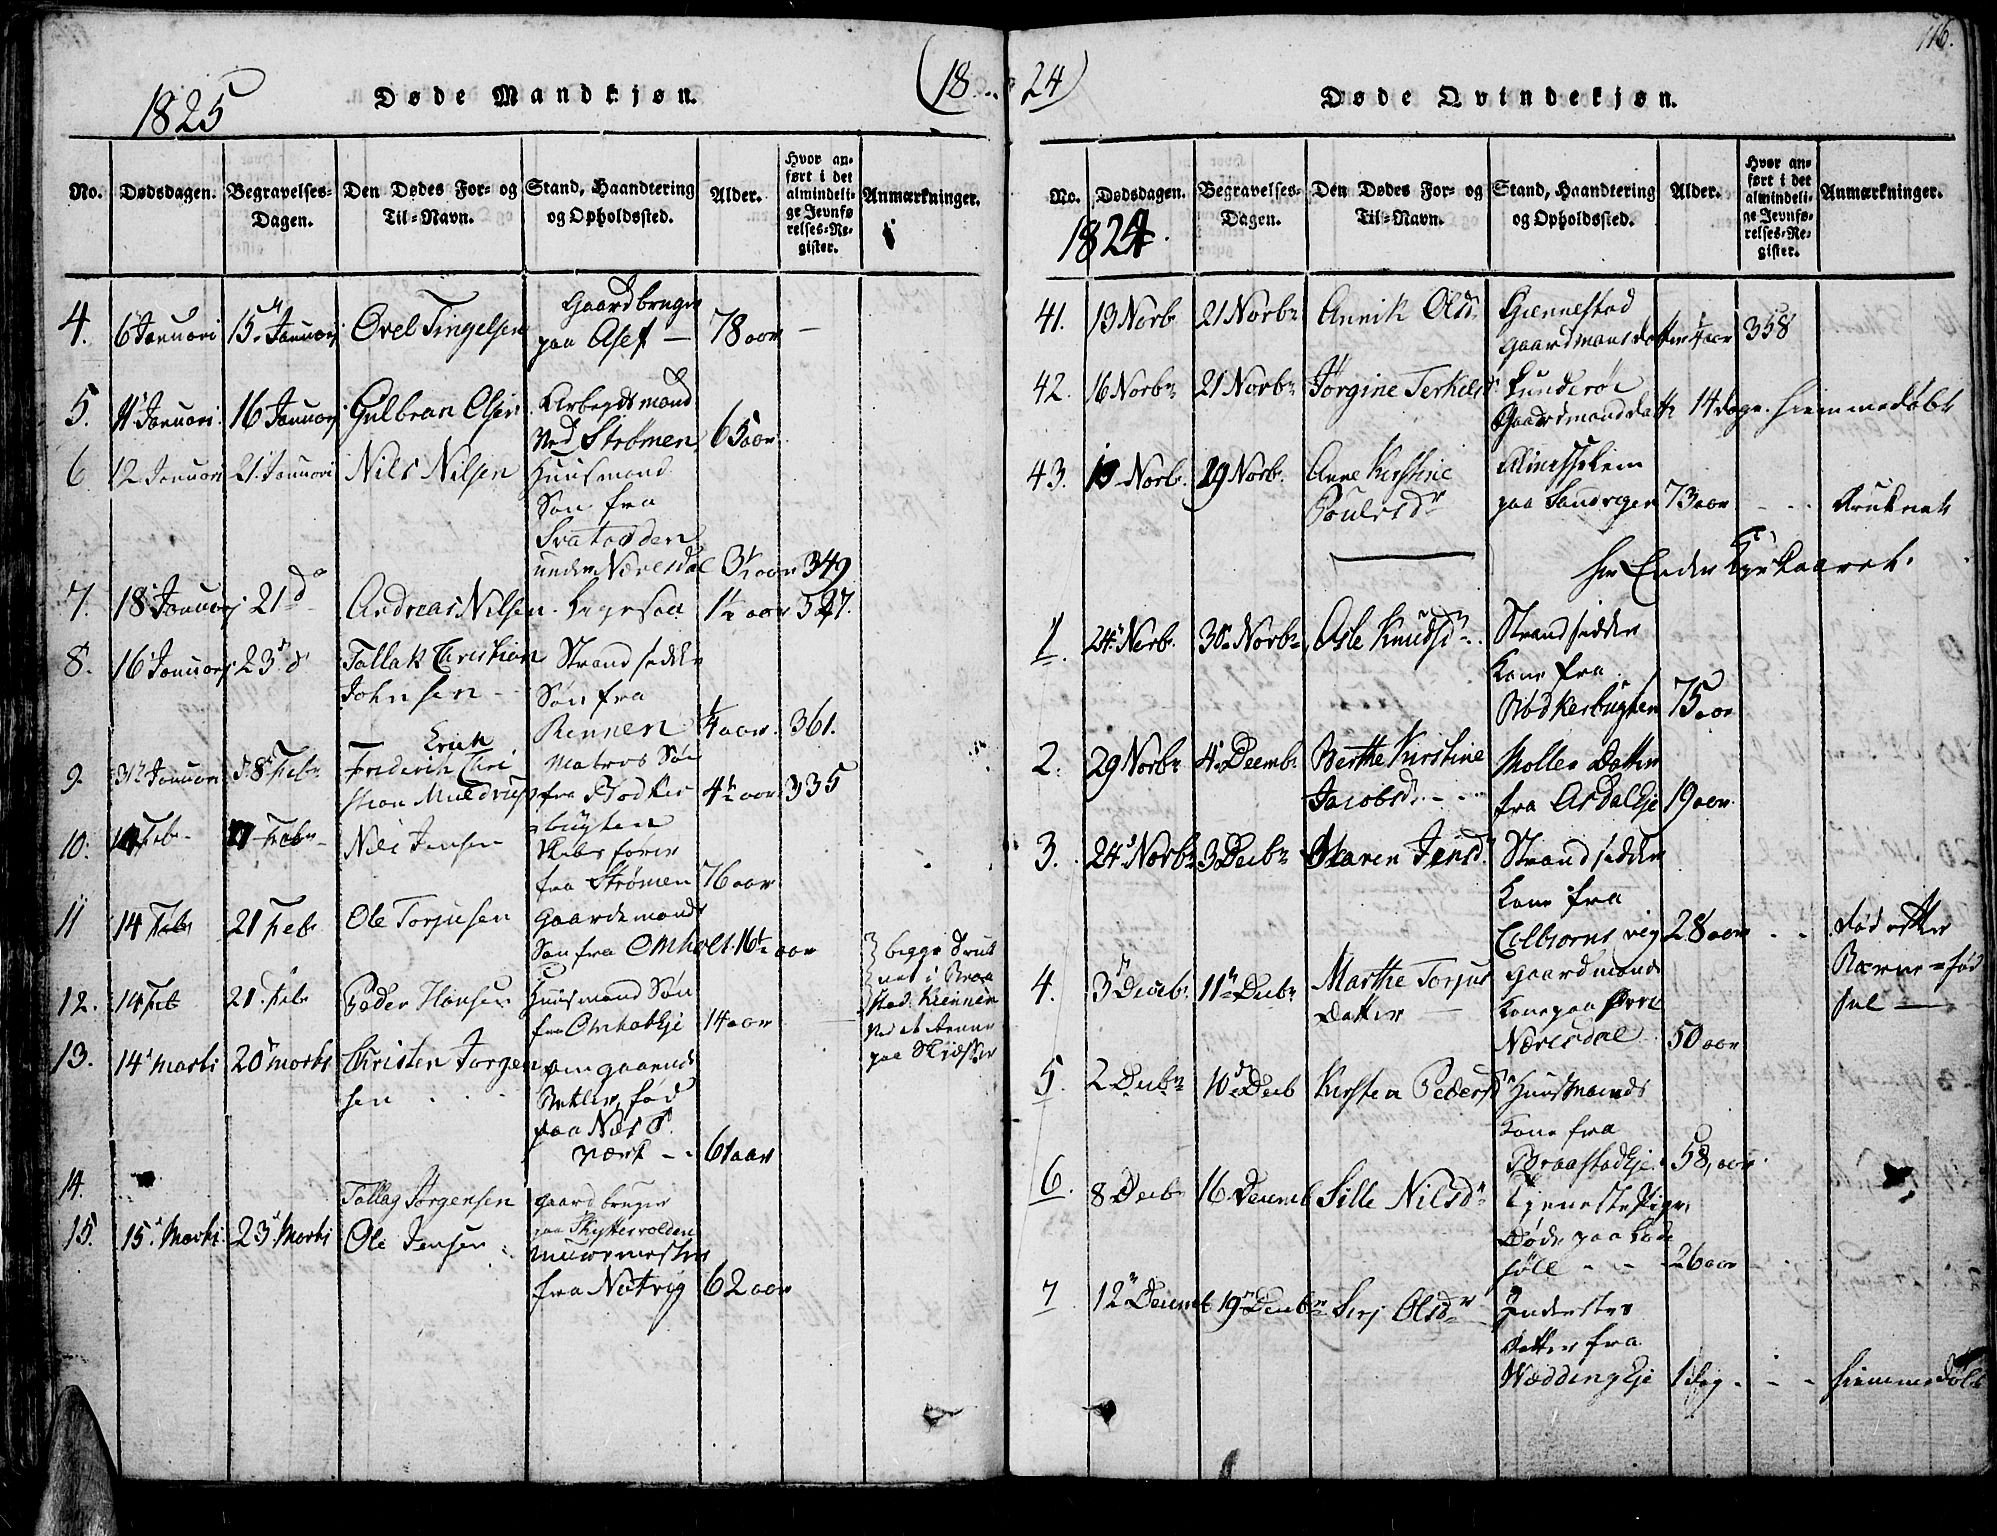 116.
(18
24)
1825
Døde Mandkjøn.
No.
Dødsdagen.
Begravelses-
Dagen.
Den Dødes For- og
Til-Navn.
Stand, Haandtering
og Opholdssted.
Alder.
Hvor an-
ført i det
almindeli-
ge Jevnfø
relses-Re-
gister.
Anmærkninger.
4. 6 Januari 15 Januarj Ovel Tingelsen
Gaardbruger
paa Asef — 78 aar —
5. 11 Januari 16 Januarj Gulbran Olsen
Arbeydsmand
ved Strømen 65 aar
6 12 Januari 21 Januari Nils Nilsen
Huusmand
Søn fra
under Næresdal 3½ aar 349
7. 18 Januarj 21 do Andreas Nilsen 1½ aar 527.
8. 16 Januarj 23 d Tallak Christian
Johnsen -
Strandsidder
Søn fra
Rennen ¼ aar. 361.
9. 31 Januari 8 Feb
Erich
Frederik Chri
stian Muldrup
Matros Søn
fra Bødker
bugten
4½ aar 335
10. Feb Feb Nils Jensen
Skibsfører
fra Strømen 76 aar
11 14 Feb 21 Feb Ole Torjusen
Gaardmands
Søn fra Omholt. 16½ aar
12. 14 Feb 21 Feb Peder Hansen
Huusmand Søn
fra Omholteje 14 aar —
begge Druk
net i Braa
stad Kiennen
paa Skydser
13. 14 Marti 20 Marti Christen Jorgen
sen . . .
omgaaende
Betler, fød
paa Næs
Værk - - 61 aar
14. Tallag Jørgensen
Gaardbruger
15. 15 Marti 23 Marti Ole Jensen
Muurmester
fra Natvig 62 aar
Døde Qvindekjøn.
No.
Dødsdagen.
Begravelses-
Dagen.
Den Dødes For- og
Til-Navn.
Stand, Haandtering
og Opholdssted.
Alder.
Hvor an-
ført i det
almindeli-
ge Jevnfø-
relses-Re-
gister.
Anmærkninger.
1824.
41. 13 Norb 21 Norbr Annik Olsd.
Giennestad
Gaardmansdatter ¼ aar 358
42. 16 Norbr 21 Norbr Jørgine Terkelsd
Lunderøe
Gaardmanddatr 14 dage. hiemmedøbt
43. 19 Norb. 29 Norb. Anne Kirstine
Poulsdr
Almisselem
paa Sandvigen 73 aar - - . Druknet
her Ender Kirkeaaret.
1. 24 Norb. 30 Norbr Asle Knudsdr.
Strandsidder
Kone fra
Bødkerbugten 75 aar
2. 29 Norbr 4 Decembr Berthe Kirstine
Jacobsd. - -
Møller Datter
fra Asdaleje 19 aar.
3. 24 Norbr 3 Decbr Maren Jensd.
Strandsidder
Kone fra
Colbiørnsvig 28 aar - -
død efter
Barne=fød
sel —
4. 3 Decbr. 11 Decbr Marthe Torjus
Datter —
Gaardmands
Kone paa øvre
Næresdal 50 aar
5. 2 Decbr 10 Decb Kirsten Pedersd
Huusmands
Kone fra
Braastadeje. 58, aar
6. 8 Decb 16 Decemb Sille Nilsdr
Tjeneste Pige,
Døde paa Lade
- - 26 aar
7 12 Decemb 19 Decbr Sirj Olsdr
Inderstes
Datter fra
Wæddingeje 1 dag - - - hiemmedøbt